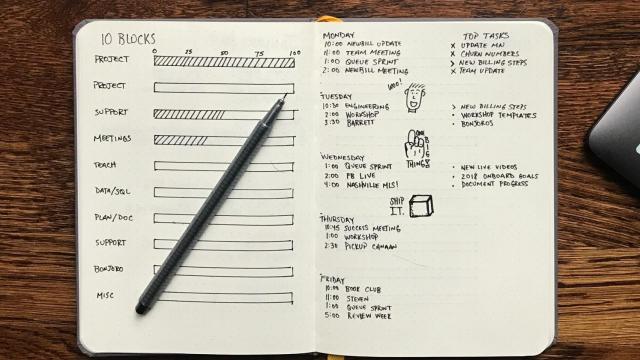 10 BLOCKS
0 25 50 75 100
PROJECT
PROJECT
SUPPORT
MEETINGS
TEACH
DATA/SQL
PLAN/DOC
SUPPORT
BONJORO
MISC
MONDAY
10:00 NEWBILL UPDATE
11:00 TEAM MEETING
1:00 QUEUE SPRINT
2:00 NEWBILL MEETING
TOP TASKS
X UPDATE MN
X CHURN NUMBERS
> NEW BILLING STEPS
X TEAM UPDATE
WOO!
TUESDAY
10:30 ENGINEERING
2:00 WORKSHOP
3:30 BARRETT
> NEW BILLING STEPS
• WORKSHOP TEMPLATES
• BONJOROS
BIG
THINGS
WEDNESDAY
1:00 QUEUE SPRINT
2:00 FB LIVE
4:00 NASHVILLE MLS!
• NEW LIVE VIDEOS
• 2018 ONBOARD GOALS
• DOCUMENT PROGRESS
SHIP
IT.
THURSDAY
10:45 SUCCESS MEETING
1:00 WORKSHOP
2:30 PICKUP CANAAN
FRIDAY
10:00 BOOK CLUB
11:00 STEVEN
1:00 QUEUE SPRINT
5:00 REVIEW WEEK